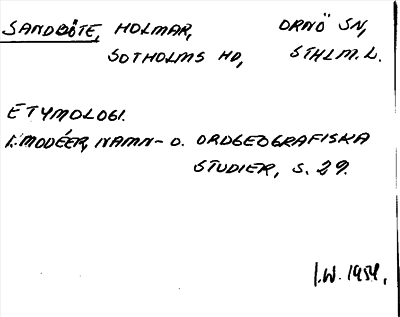 SANDBÖTE, HOLMAR, ORNÖ SN,
SOTHOLMS HD, STHLM. L.
ETYMOLOGI.
I. MODÉER, NAMN- O. ORDGEOGRAFISKA
STUDIER, S. 29.
I.W. 1954.